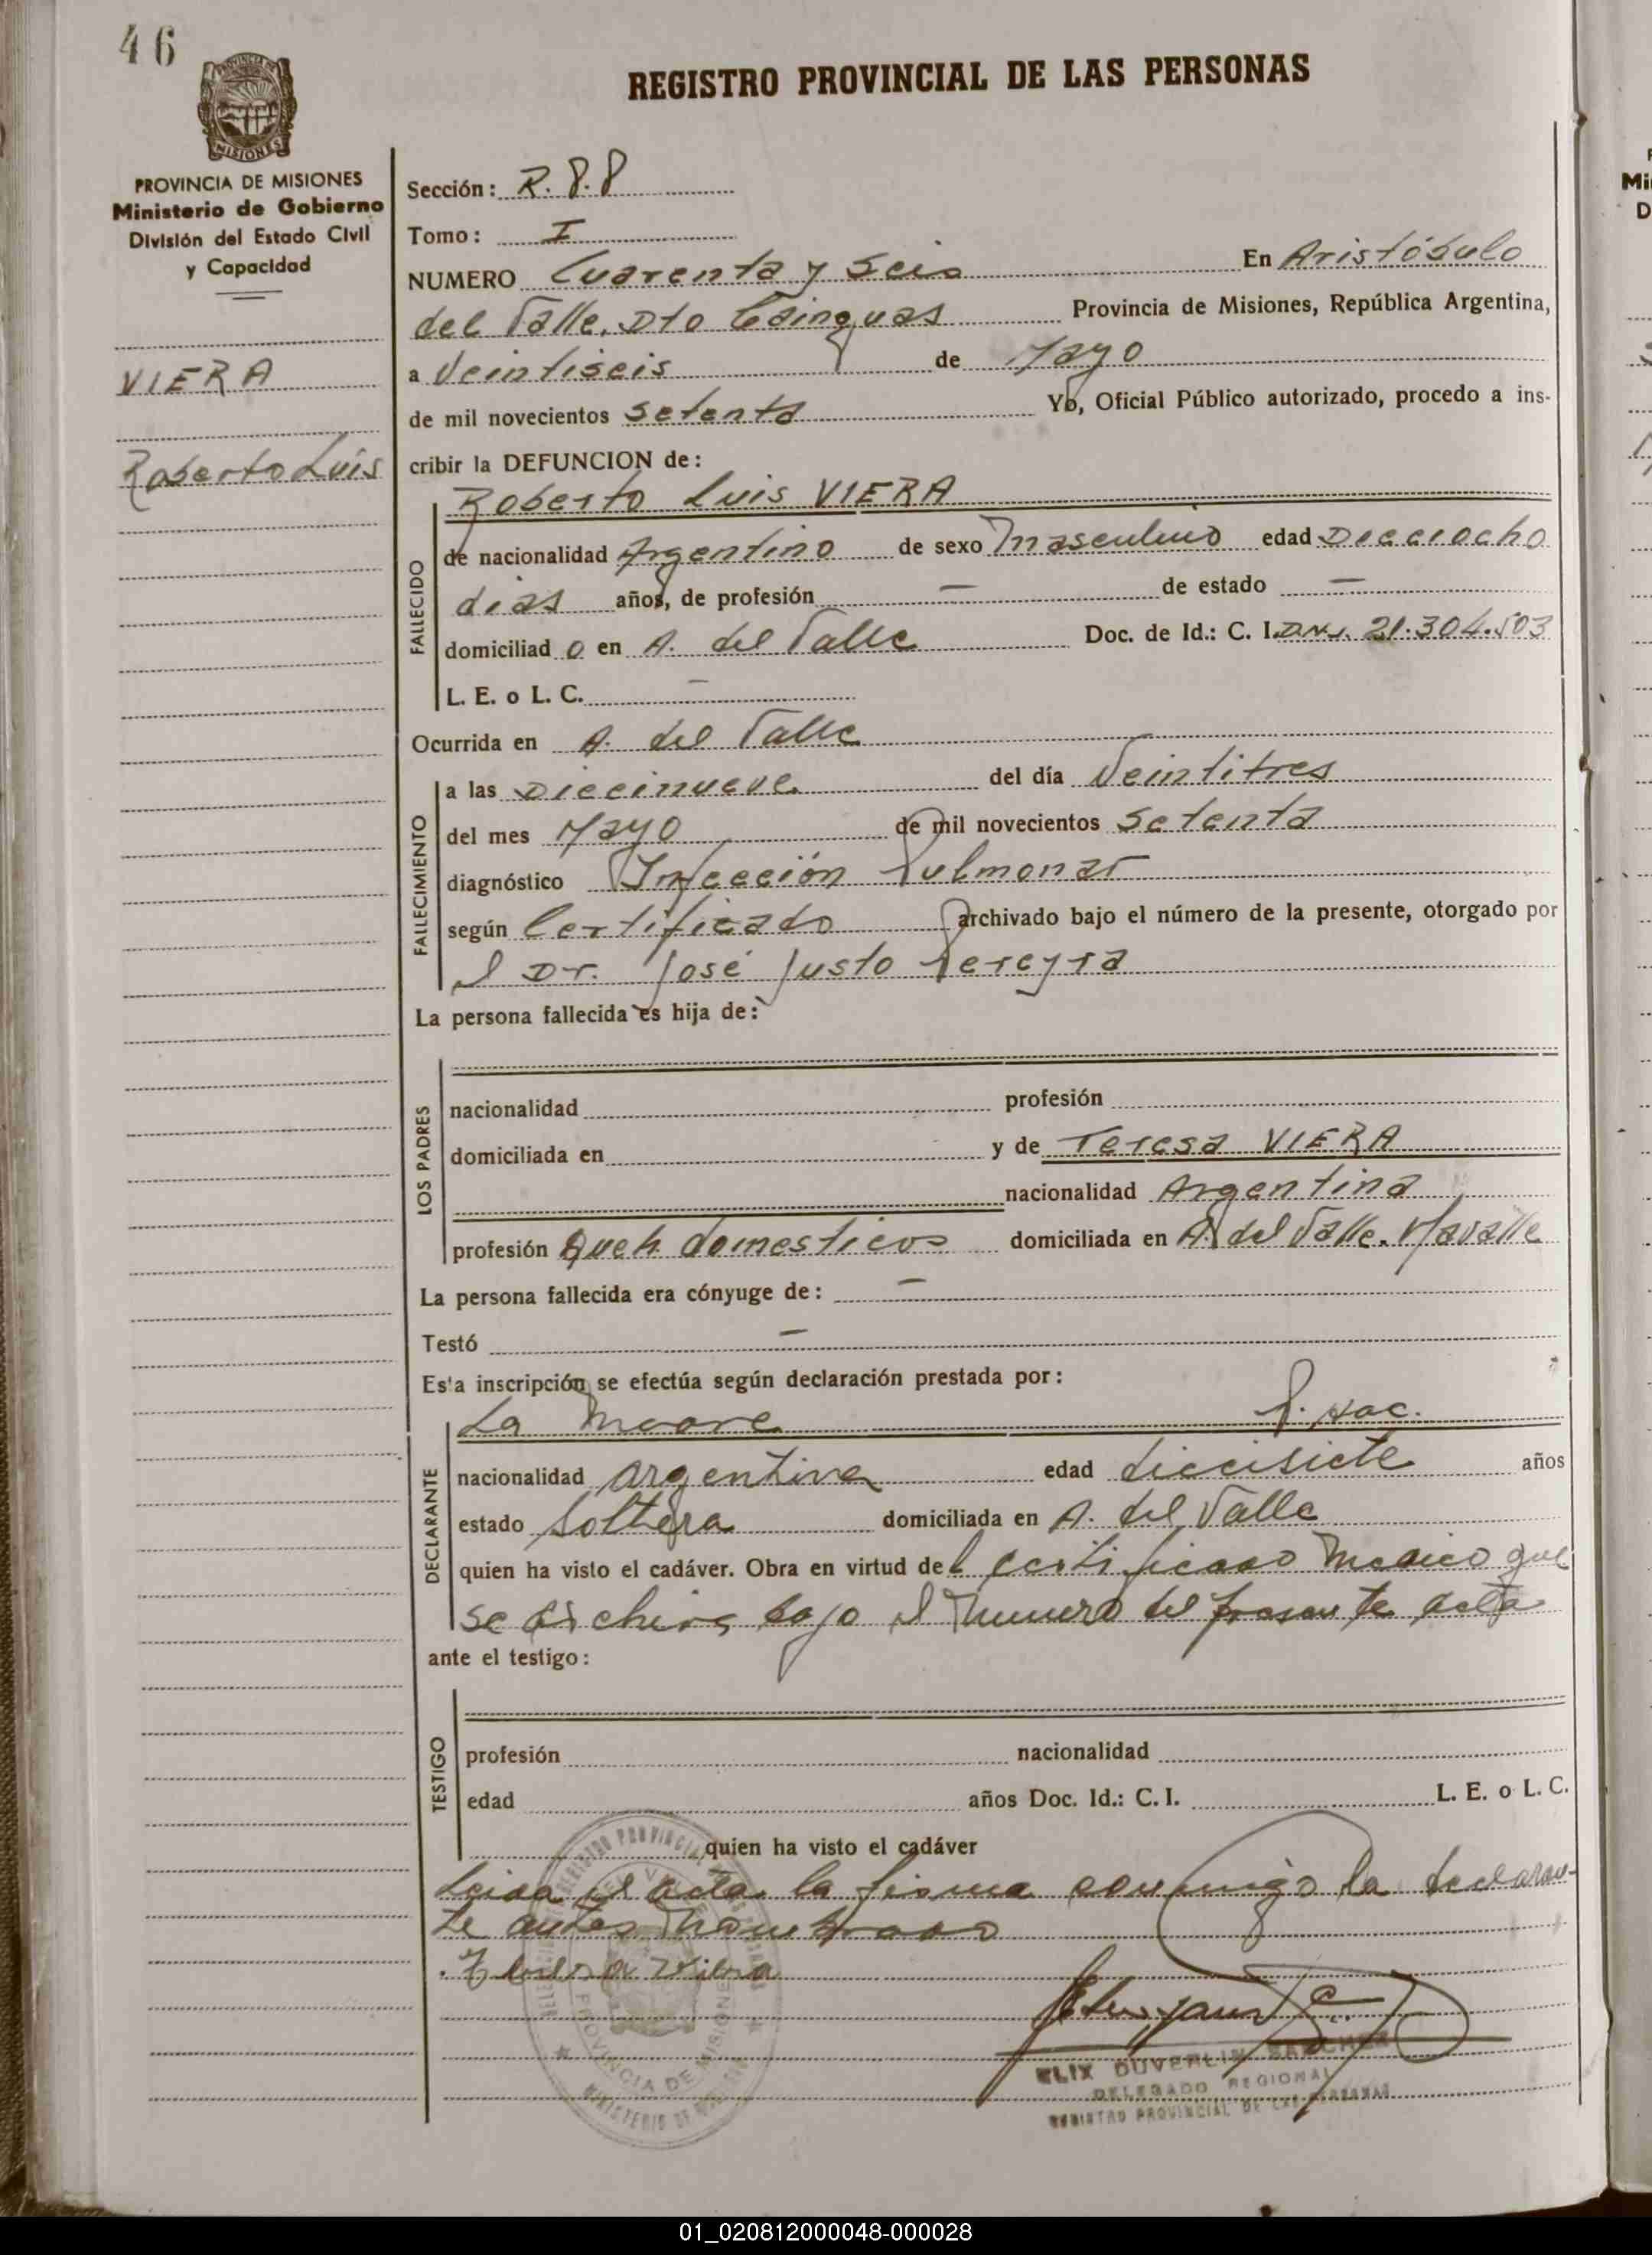 46
PROVINCIA DE MISIONES
REGISTRO PROVINCIAL DE LAS PERSONAS
PROVINCIA DE MISIONES
Ministerio de Gobierno
División del Estado Civil
y Capacidad
VIERA
Roberto Luis
Sección: R. 8.8
Tomo: I
NUMERO Cuarenta y Seis En Aristóbulo
del Valle, Dto Cainguas Provincia de Misiones, República Argentina,
a Veintiseis de Mayo
de mil novecientos Setenta Yo, Oficial Público autorizado, procedo a ins-
cribir la DEFUNCION de:
FALLECIDO
Roberto Luis VIERA
de nacionalidad Argentino de sexo Masculino edad Dieciocho
dias años, de profesión — de estado —
domiciliado en A. del Valle Doc. de Id.: C. I. DNI. 21.304.503
L. E. o L. C. —
Ocurrida en A. del Valle
FALLECIMIENTO
a las Diecinueve del día Veintitres
del mes Mayo de mil novecientos Setenta
diagnóstico Infección Pulmonar
según Certificado archivado bajo el número de la presente, otorgado por
el Dr. José Justo Pereyra
La persona fallecida es hija de:
LOS PADRES
nacionalidad profesión
domiciliada en y de Teresa VIERA
nacionalidad Argentina
profesión Queh domesticos domiciliada en A. del Valle.
La persona fallecida era cónyuge de: —
Testó —
Esta inscripción se efectúa según declaración prestada por:
DECLARANTE
La Madre
nacionalidad argentina edad diecisiete años
estado Soltera domiciliada en A. del Valle
quien ha visto el cadáver. Obra en virtud del certificado Medico que
se archiva bajo el Numero del presente acta
ante el testigo:
TESTIGO
profesión nacionalidad
edad años Doc. Id.: C. I. L. E. o L. C.
quien ha visto el cadáver
Leida el acta la firma conmigo la declaran-
te antes Nombrado
Viera
ELIX DUVERLIN SANCHEZ
DELEGADO REGIONAL
REGISTRO PROVINCIAL DE LAS PERSONAS
PROVINCIA DE MISIONES
01_020812000048-000028